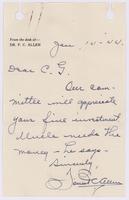 From the desk of—
DR. F. C. ALLEN
Jan. 14-44
Dear C. G.
Our com-
mittee will appreciate
your fine investment
Uncle needs the
money - he says -
Sincerely,
Forrest C Allen